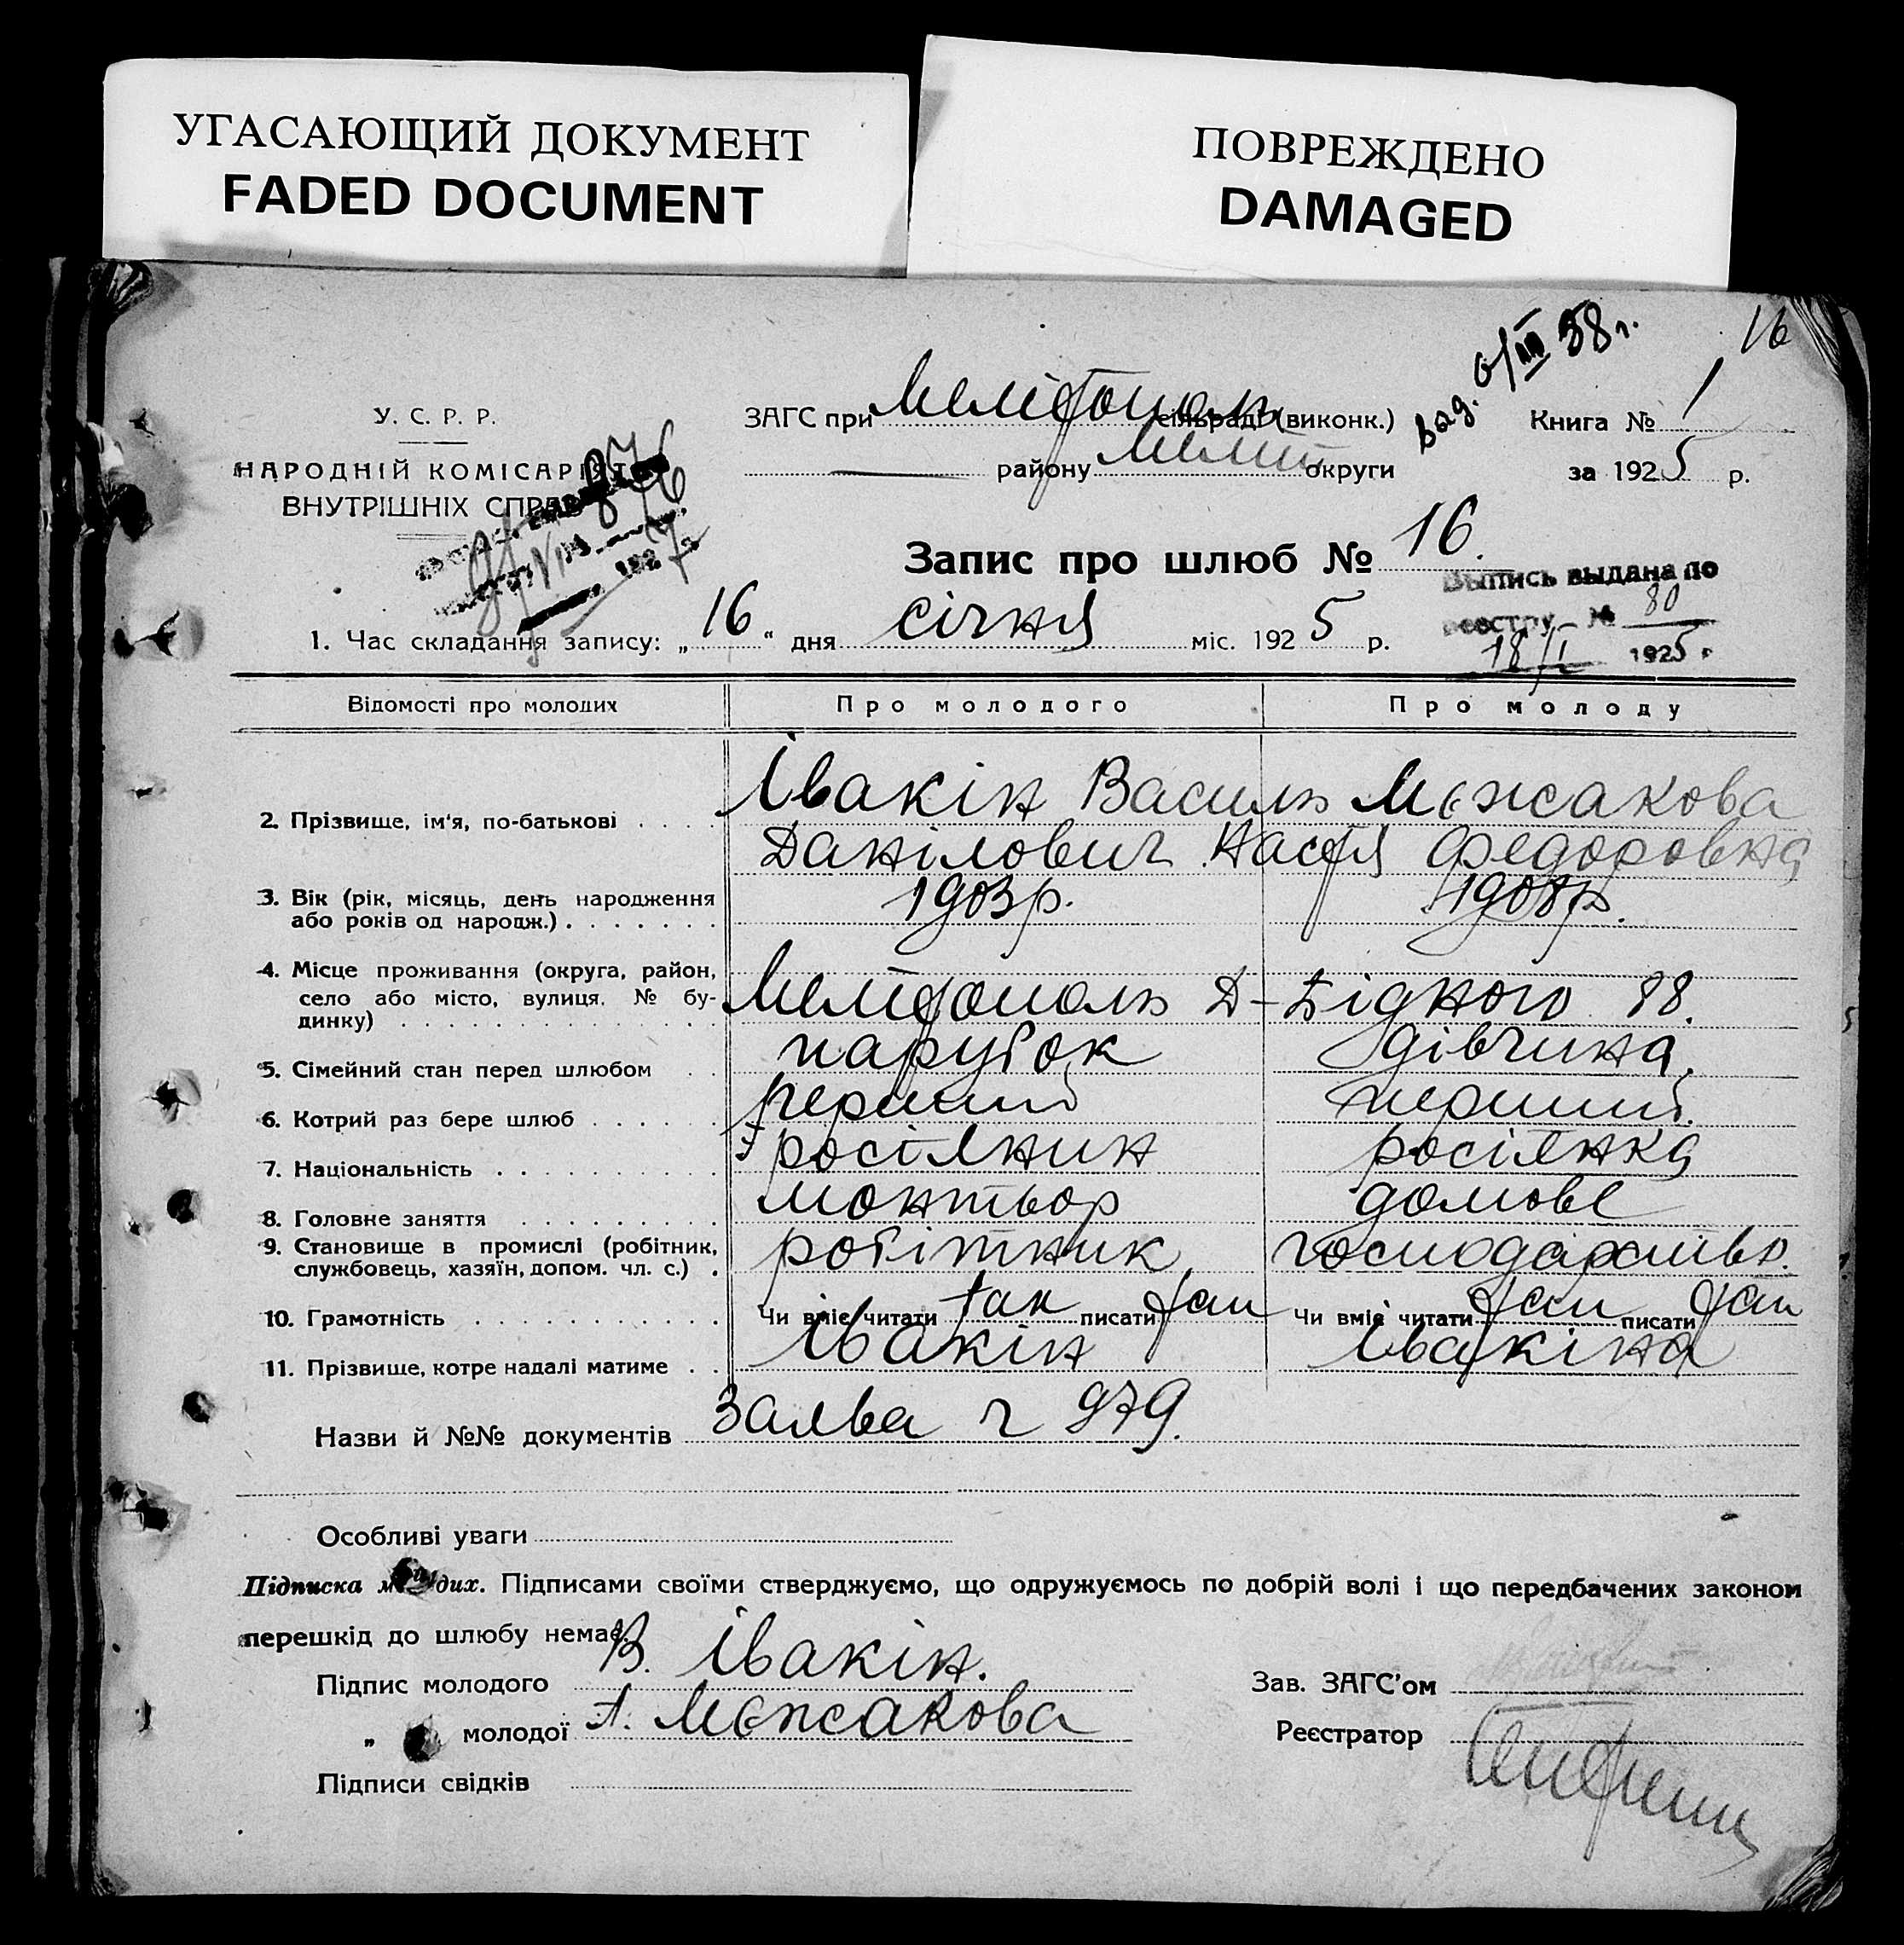 УГАСАЮЩИЙ ДОКУМЕНТ
FADED DOCUMENT
ПОВРЕЖДЕНО
DAMAGED
16
Вид. 6/III 38 г.
У. С. Р. Р.
НАРОДНІЙ КОМІСАРІЯТ
ВНУТРІШНІХ СПРАВ
876
ЗАГС при Мелітополь сільраді (виконк.)
— району Меліт округи
Книга № 1
за 1925 р.
Запис про шлюб № 16.
Выпись выдана по
реестру № 80
18/I 1925 г
1. Час складання запису: „16“ дня січня міс. 1925 р.
Відомості про молодих Про молодого Про молоду
2. Прізвище, ім'я, по-батькові Івакін Василь Мєжакова
Данілович Настя Федоровна
3. Вік (рік, місяць, день народження або років од народж.) 1903 р. 1908 р.
4. Місце проживання (округа, район, село або місто, вулиця, № будинку) Мелітополь Д-Бідного 88.
5. Сімейний стан перед шлюбом парубок дівчина
6. Котрий раз бере шлюб перший перший.
7. Національність росіянин росіянка
8. Головне заняття монтьор домове
9. Становище в промислі (робітник, службовець, хазяїн, допом. чл. с.) робітник господарство.
10. Грамотність Чи вміє читати так писати так Чи вміє читати так писати так
11. Прізвище, котре надалі матиме Івакін Івакіна
Назви й №№ документів Заява ч 979.
Особливі уваги
Підписка молодих. Підписами своїми стверджуємо, що одружуємось по добрій волі і що передбачених законом
перешкід до шлюбу немає.
Підпис молодого В. Івакін.
„ молодої А. Мєжакова
Підписи свідків
Зав. ЗАГС'ом
Реєстратор